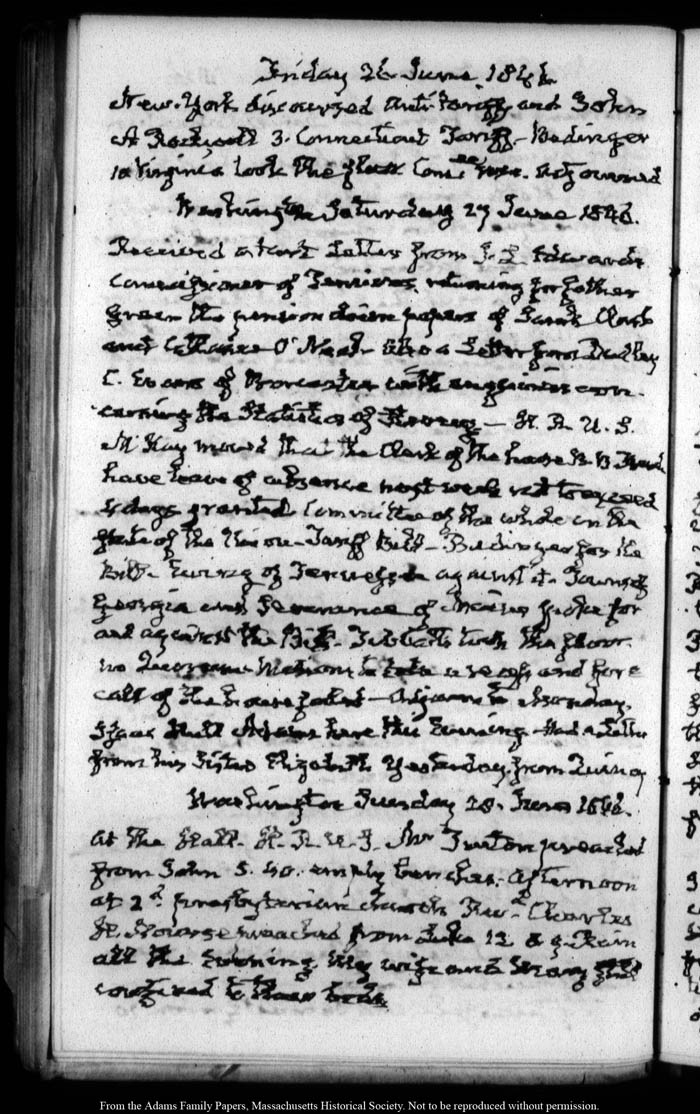 Friday 26 June 1846.
New-York discoursed anti tariff and John
A Rockwell 3. Connecticut Tariff- Bedinger
10 Virginia took the floor Comee rose. adjourned
Washington Saturday 27 June 1846.
Received a short Letter from J. L. Edwards
Commissioner of Pensions returning for further
the pension papers of Sarah Clark
and Catharine O'Neal- also a Letter from Dudley
C. Evans of Worcester with enquiries con-
cerning the Statistics of — H. R. U. S.
McKay moved that the Clerk of the house B. B. French
have leave of absence next week not to exceed
days granted Committee of the whole on the
state of the Union- Tariff Bill- Bedinger for the
Bill- Ewing of Tennessee against it- Towns of
Georgia and Severance of Maine spoke for
and against the Bill- Tibbatts took the floor.
no Quorum Motions to take a recess and for a
call of the house failed- Adjourned to Monday.
Isaac Hull Adams here this Evening- Had a Letter
from his Sister Elizabeth Yesterday from Quincy
Washington Sunday 28. June 1846.
At the Hall. H. R. U. S. Mr Tuston preached
from John 5. 40. empty benches. Afternoon
at 2d Presbyterian church Revd Charles
H. preached from Luke 12 Rain
all the Evening. My wife and Mary
confined to their beds
From the Adams Family Papers, Massachusetts Historical Society. Not to be reproduced without permission.